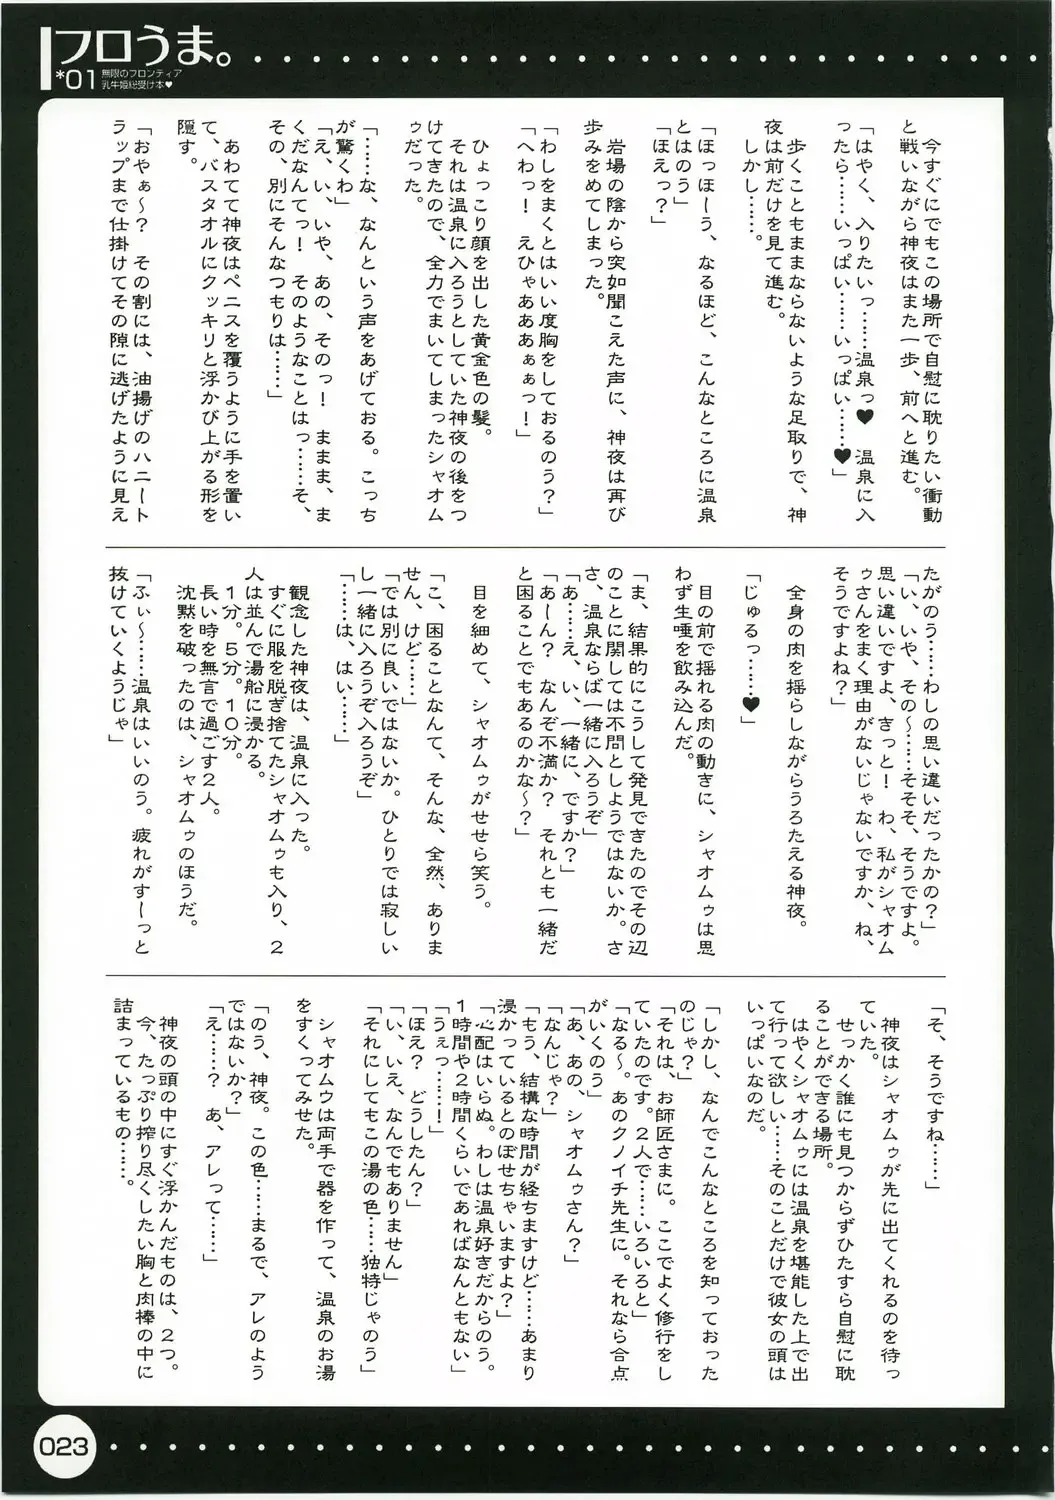 フロうま。
*01
無限のフロンティア
乳牛姫総受け本♥
今すぐにでもこの場所で自慰に耽りたい衝動
と戦いながら神夜はまた一歩、前へと進む。
「はやく、入りたいっ……温泉っ♥　温泉に入
ったら……いっぱい……いっぱい……♥」
歩くこともままならないような足取りで、神
夜は前だけを見て進む。
しかし……。
「ほっほーう、なるほど、こんなところに温泉
とはのう」
「ほえっ？」
岩場の陰から突如聞こえた声に、神夜は再び
歩みをめてしまった。
「わしをまくとはいい度胸をしておるのう？」
「へわっ！　えひゃあああぁぁっ！」
ひょっこり顔を出した黄金色の髪。
それは温泉に入ろうとしていた神夜の後をつ
けてきたので、全力でまいてしまったシャオム
ゥだった。
「……な、なんという声をあげておる。こっち
が驚くわ」
「え、い、いや、あの、そのっ！　ままま、ま
くだなんてっ！　そのようなことはっ……そ、
その、別にそんなつもりは……」
あわてて神夜はペニスを覆うように手を置い
て、バスタオルにクッキリと浮かび上がる形を
隠す。
「おやぁ～？　その割には、油揚げのハニート
ラップまで仕掛けてその隙に逃げたように見え
たがのう……わしの思い違いだったかの？」
「い、いや、その～……そそそ、そうですよ。
思い違いですよ、きっと！　わ、私がシャオム
ゥさんをまく理由がないじゃないですか、ね、
そうですよね？」
全身の肉を揺らしながらうろたえる神夜。
「じゅるっ……♥」
目の前で揺れる肉の動きに、シャオムゥは思
わず生唾を飲み込んだ。
「ま、結果的にこうして発見できたのでその辺
のことに関しては不問としようではないか。さ
さ、温泉ならば一緒に入ろうぞ」
「あ……え、い、一緒に、ですか？」
「あーん？　なんぞ不満か？　それとも一緒だ
と困ることでもあるのかな～？」
目を細めて、シャオムゥがせせら笑う。
「こ、困ることなんて、そんな、全然、ありま
せん、けど……」
「では別に良いではないか。ひとりでは寂しい
し一緒に入ろうぞ入ろうぞ」
「……は、はい……」
観念した神夜は、温泉に入った。
すぐに服を脱ぎ捨てたシャオムゥも入り、２
人は並んで湯船に浸かる。
１分。５分。１０分。
長い時を無言で過ごす２人。
沈黙を破ったのは、シャオムゥのほうだ。
「ふぃ～……温泉はいいのう。疲れがすーっと
抜けていくようじゃ」
「そ、そうですね……」
神夜はシャオムゥが先に出てくれるのを待っ
ていた。
せっかく誰にも見つからずひたすら自慰に耽
ることができる場所。
はやくシャオムゥには温泉を堪能した上で出
て行って欲しい……そのことだけで彼女の頭は
いっぱいなのだ。
「しかし、なんでこんなところを知っておった
のじゃ？」
「それは、お師匠さまに。ここでよく修行をし
ていたのです。２人で……いろいろと」
「なる～。あのクノイチ先生に。それなら合点
がいくのう」
「あ、あの、シャオムゥさん？」
「なんじゃ？」
「もう、結構な時間が経ちますけど……あまり
浸かっているとのぼせちゃいますよ？」
「心配はいらぬ。わしは温泉好きだからのう。
１時間や２時間くらいであればなんともない」
「うぇっ……！」
「ほえ？　どうしたん？」
「い、いえ、なんでもありません」
「それにしてもこの湯の色……独特じゃのう」
シャオムウは両手で器を作って、温泉のお湯
をすくってみせた。
「のう、神夜。この色……まるで、アレのよう
ではないか？」
「え……？　あ、アレって……」
神夜の頭の中にすぐ浮かんだものは、２つ。
今、たっぷり搾り尽くしたい胸と肉棒の中に
詰まっているもの……。
023